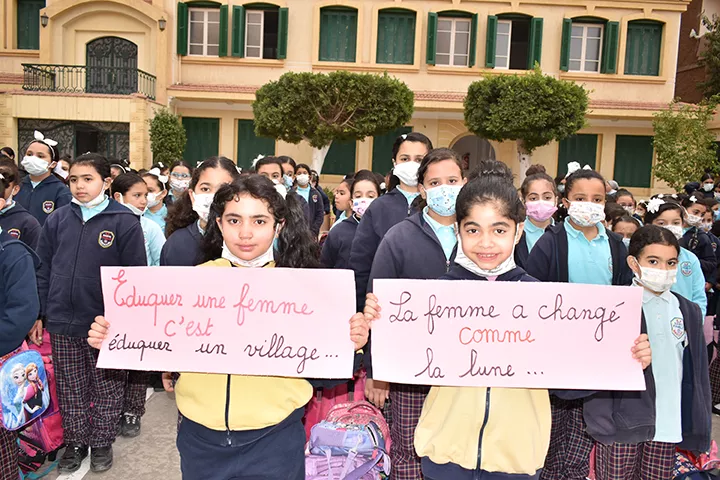 Éduquer une femme
c'est
éduquer un village...
La femme a changé
comme
la lune...